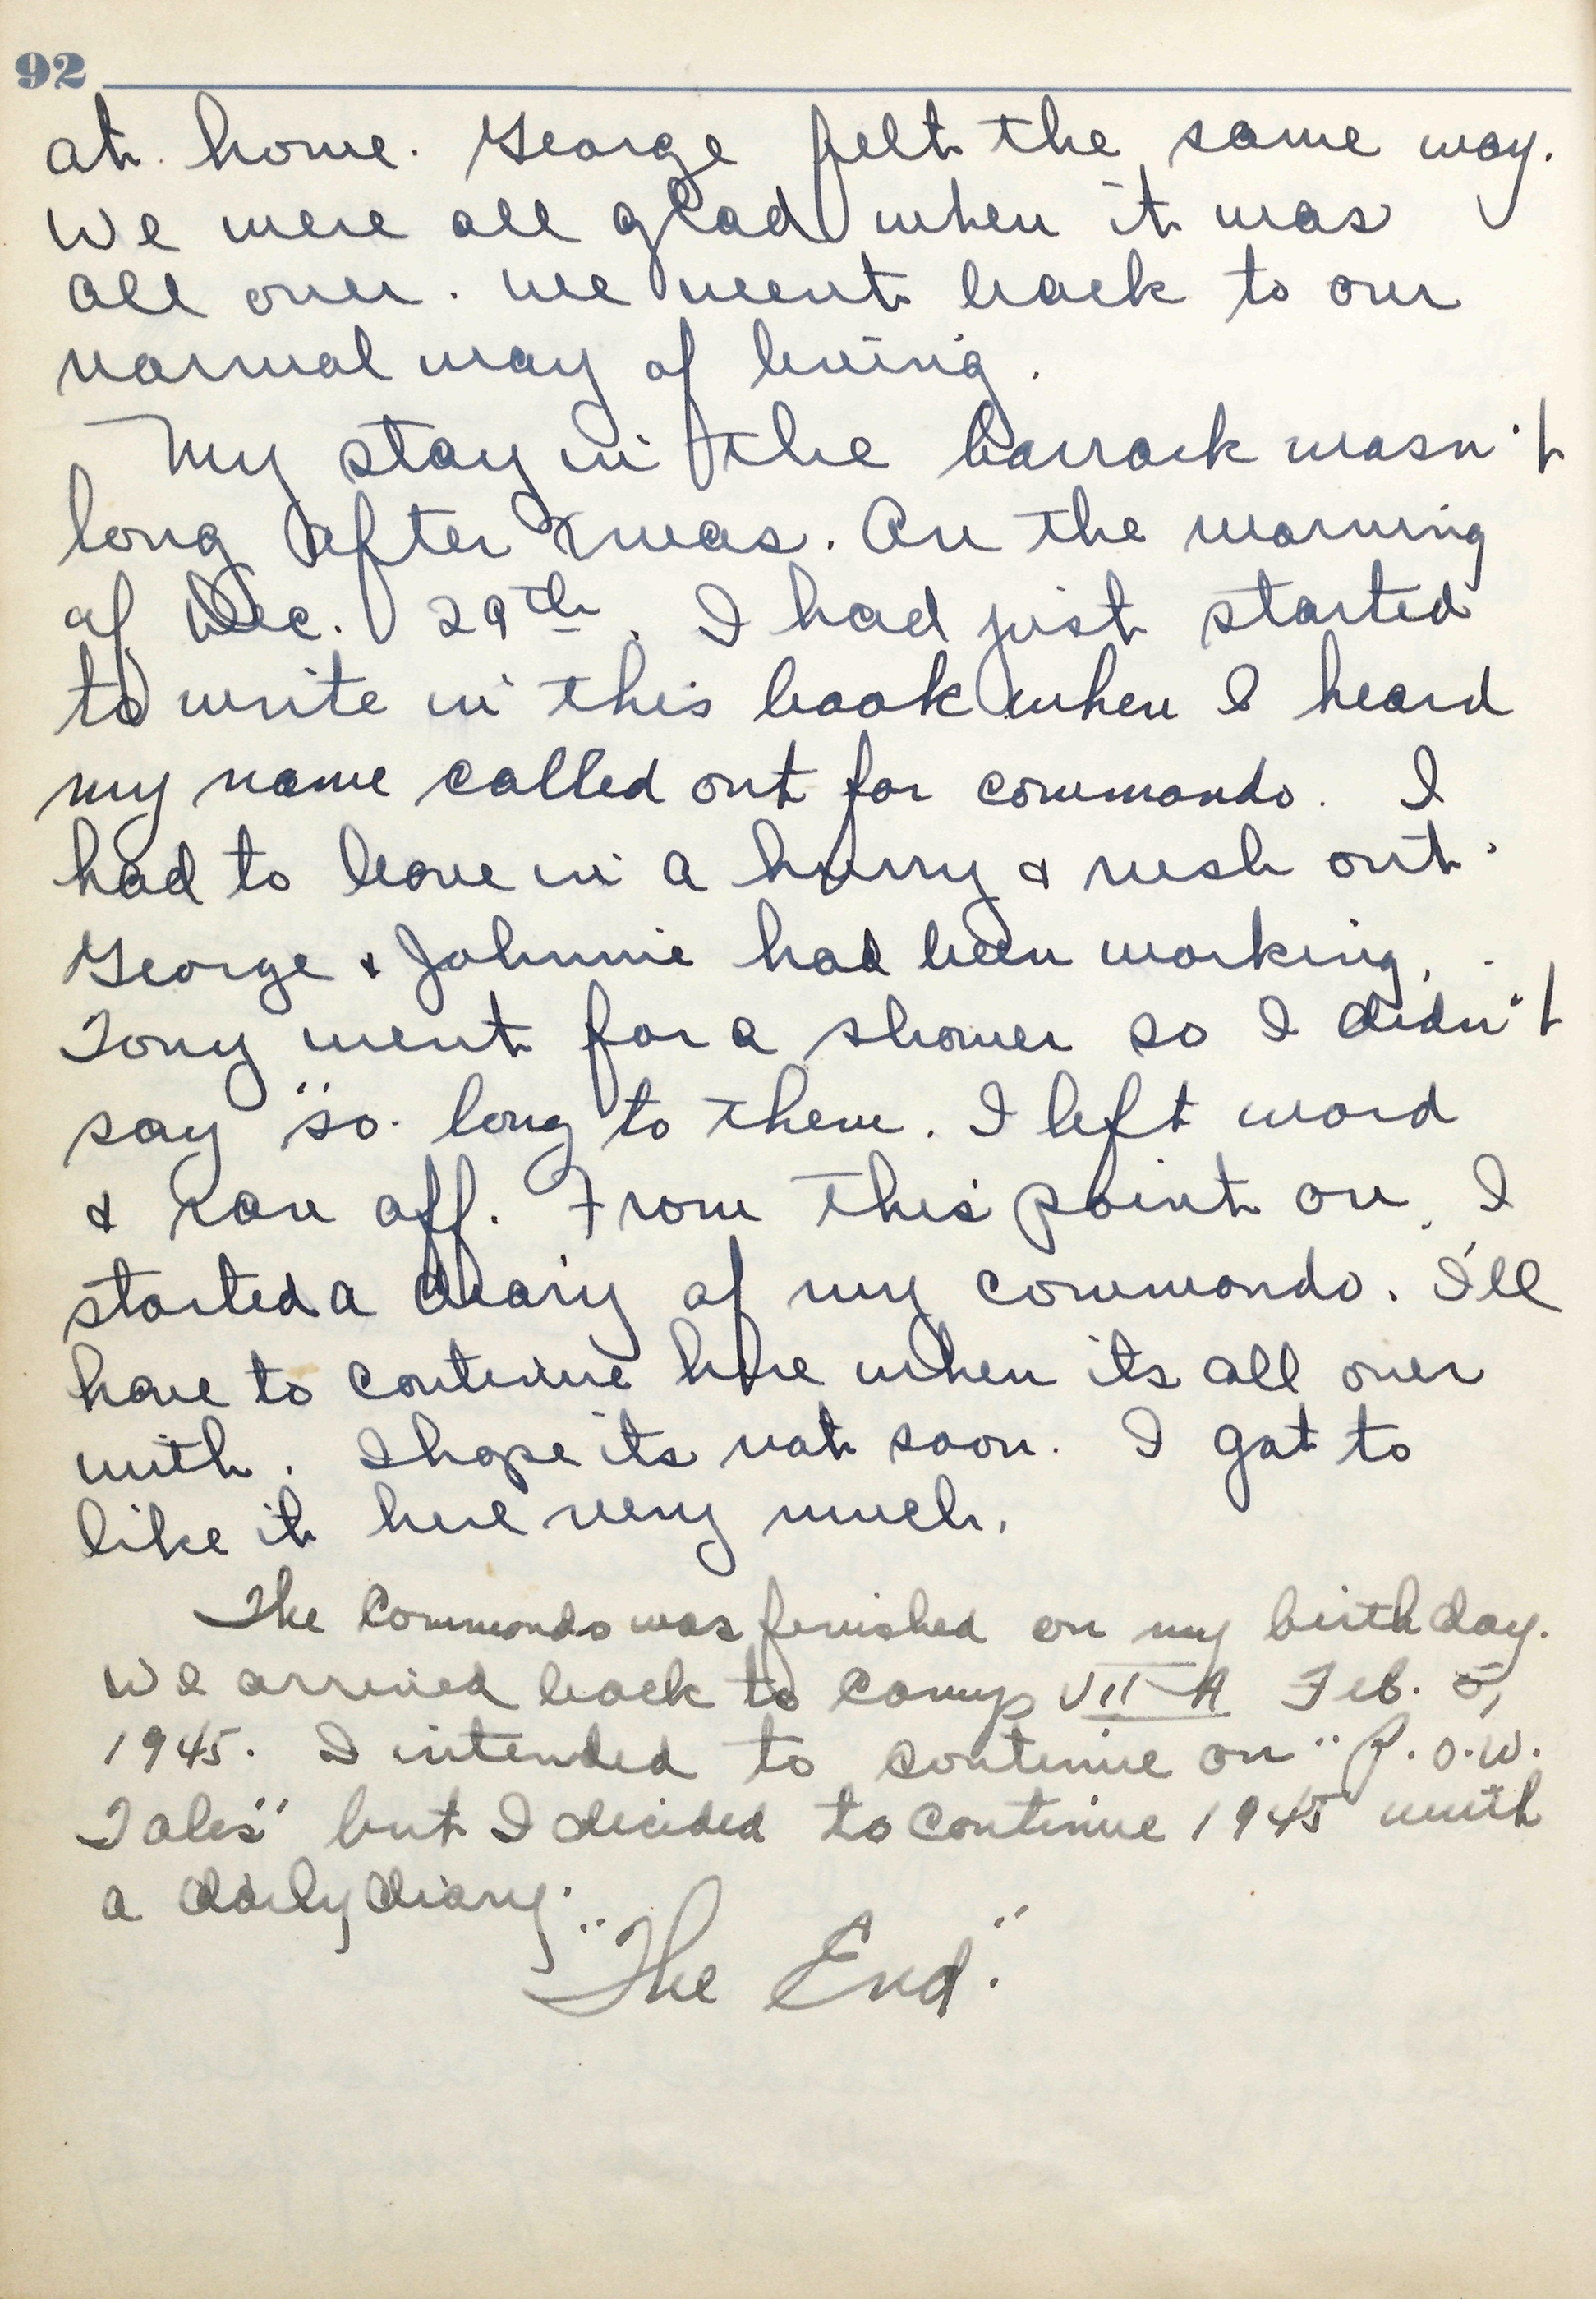 92
at home. George felt the same way.
We were all glad when it was
all over. We went back to our
normal way of living.
My stay in the barrack wasn't
long after Xmas. On the morning
of Dec. 29th. I had just started
to write in this book when I heard
my name called out for commando. I
had to leave in a hurry & rush out.
George & Johnnie had been working.
Tony went for a shower so I didn't
say "so long to them. I left word
& ran off. From this point on, I
started a diary of my commando. I'll
have to continue here when its all over
with. I hope its not soon. I got to
like it here very much.
The Commando was finished on my birthday.
We arrived back to camp VII-A Feb. 5,
1945. I intended to continue on "P.O.W.
Tales" but I decided to continue 1945 with
a daily diary.
"The End."